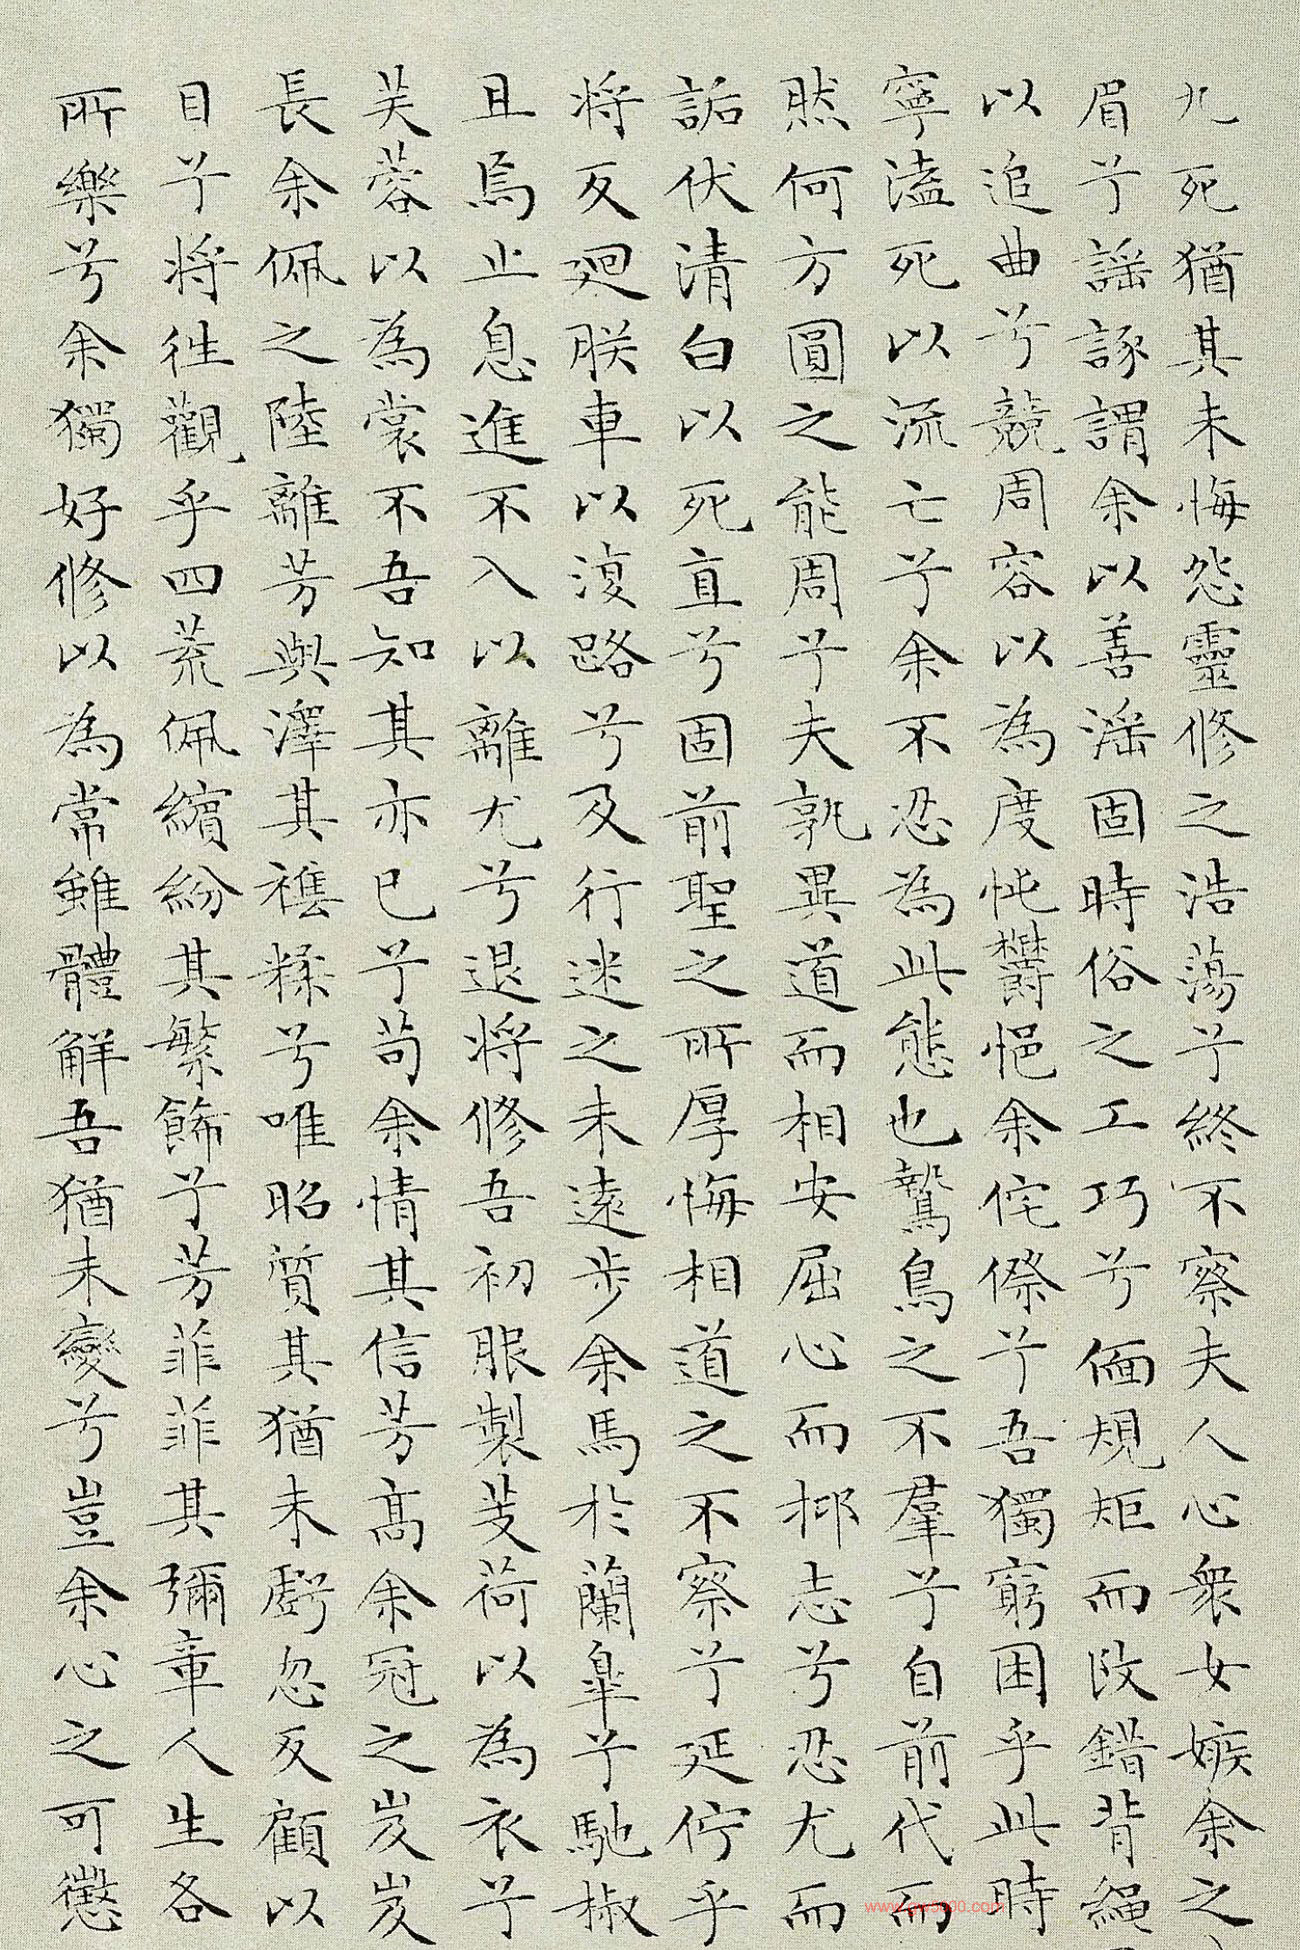 九死猶其未悔怨靈修之浩蕩兮終不察夫人心衆女嫉余之
眉兮謡諑謂余以善淫固時俗之工巧兮偭規矩而改錯背繩
以追曲兮競周容以為度忳鬱悒余侘傺兮吾獨窮困乎此時
寧溘死以流亡兮余不忍為此態也鷙鳥之不羣兮自前代而
然何方圓之能周兮夫孰異道而相安屈心而抑志兮忍尤而
詬伏清白以死直兮固前聖之所厚悔相道之不察兮延佇乎
将反廻朕車以復路兮及行迷之未遠步余馬於蘭皐兮馳椒
且焉止息進不入以離尤兮退将修吾初服製芰荷以為衣兮
芙蓉以為裳不吾知其亦已兮苟余情其信芳高余冠之岌岌
長余佩之陸離芳與澤其襍糅兮唯昭質其猶未虧忽反顧以
目兮将往觀乎四荒佩繽紛其繁飾兮芳菲菲其彌章人生各
所樂兮余獨好修以為常雖體解吾猶未變兮豈余心之可懲